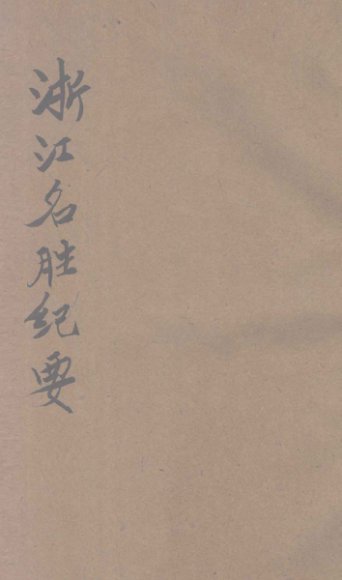 浙江名胜纪要